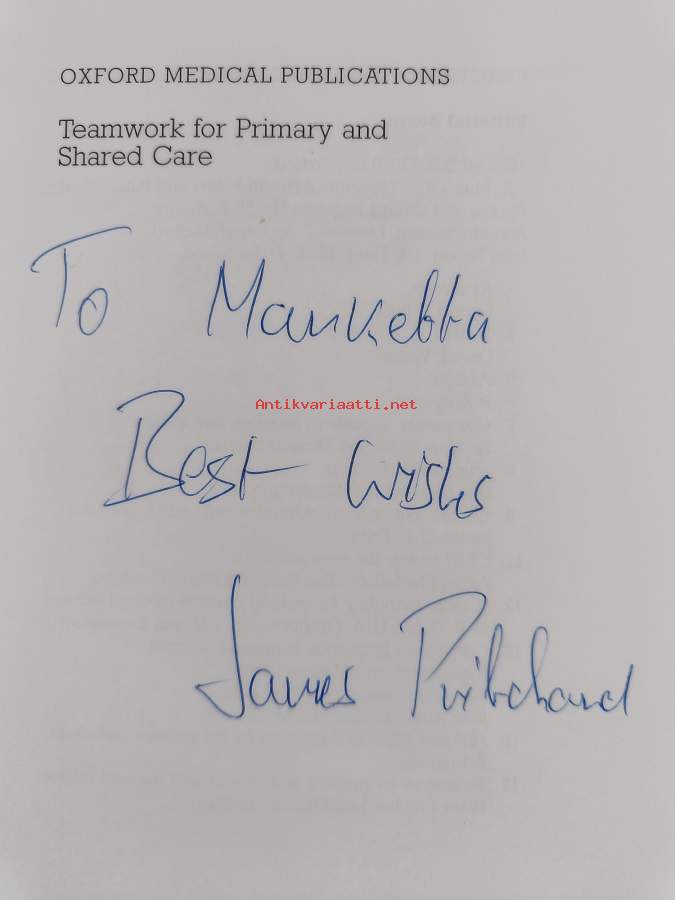 OXFORD MEDICAL PUBLICATIONS
Teamwork for Primary and
Shared Care
To Mankebba
Antikvariaatti.net
Best Wishes
James Pritchard